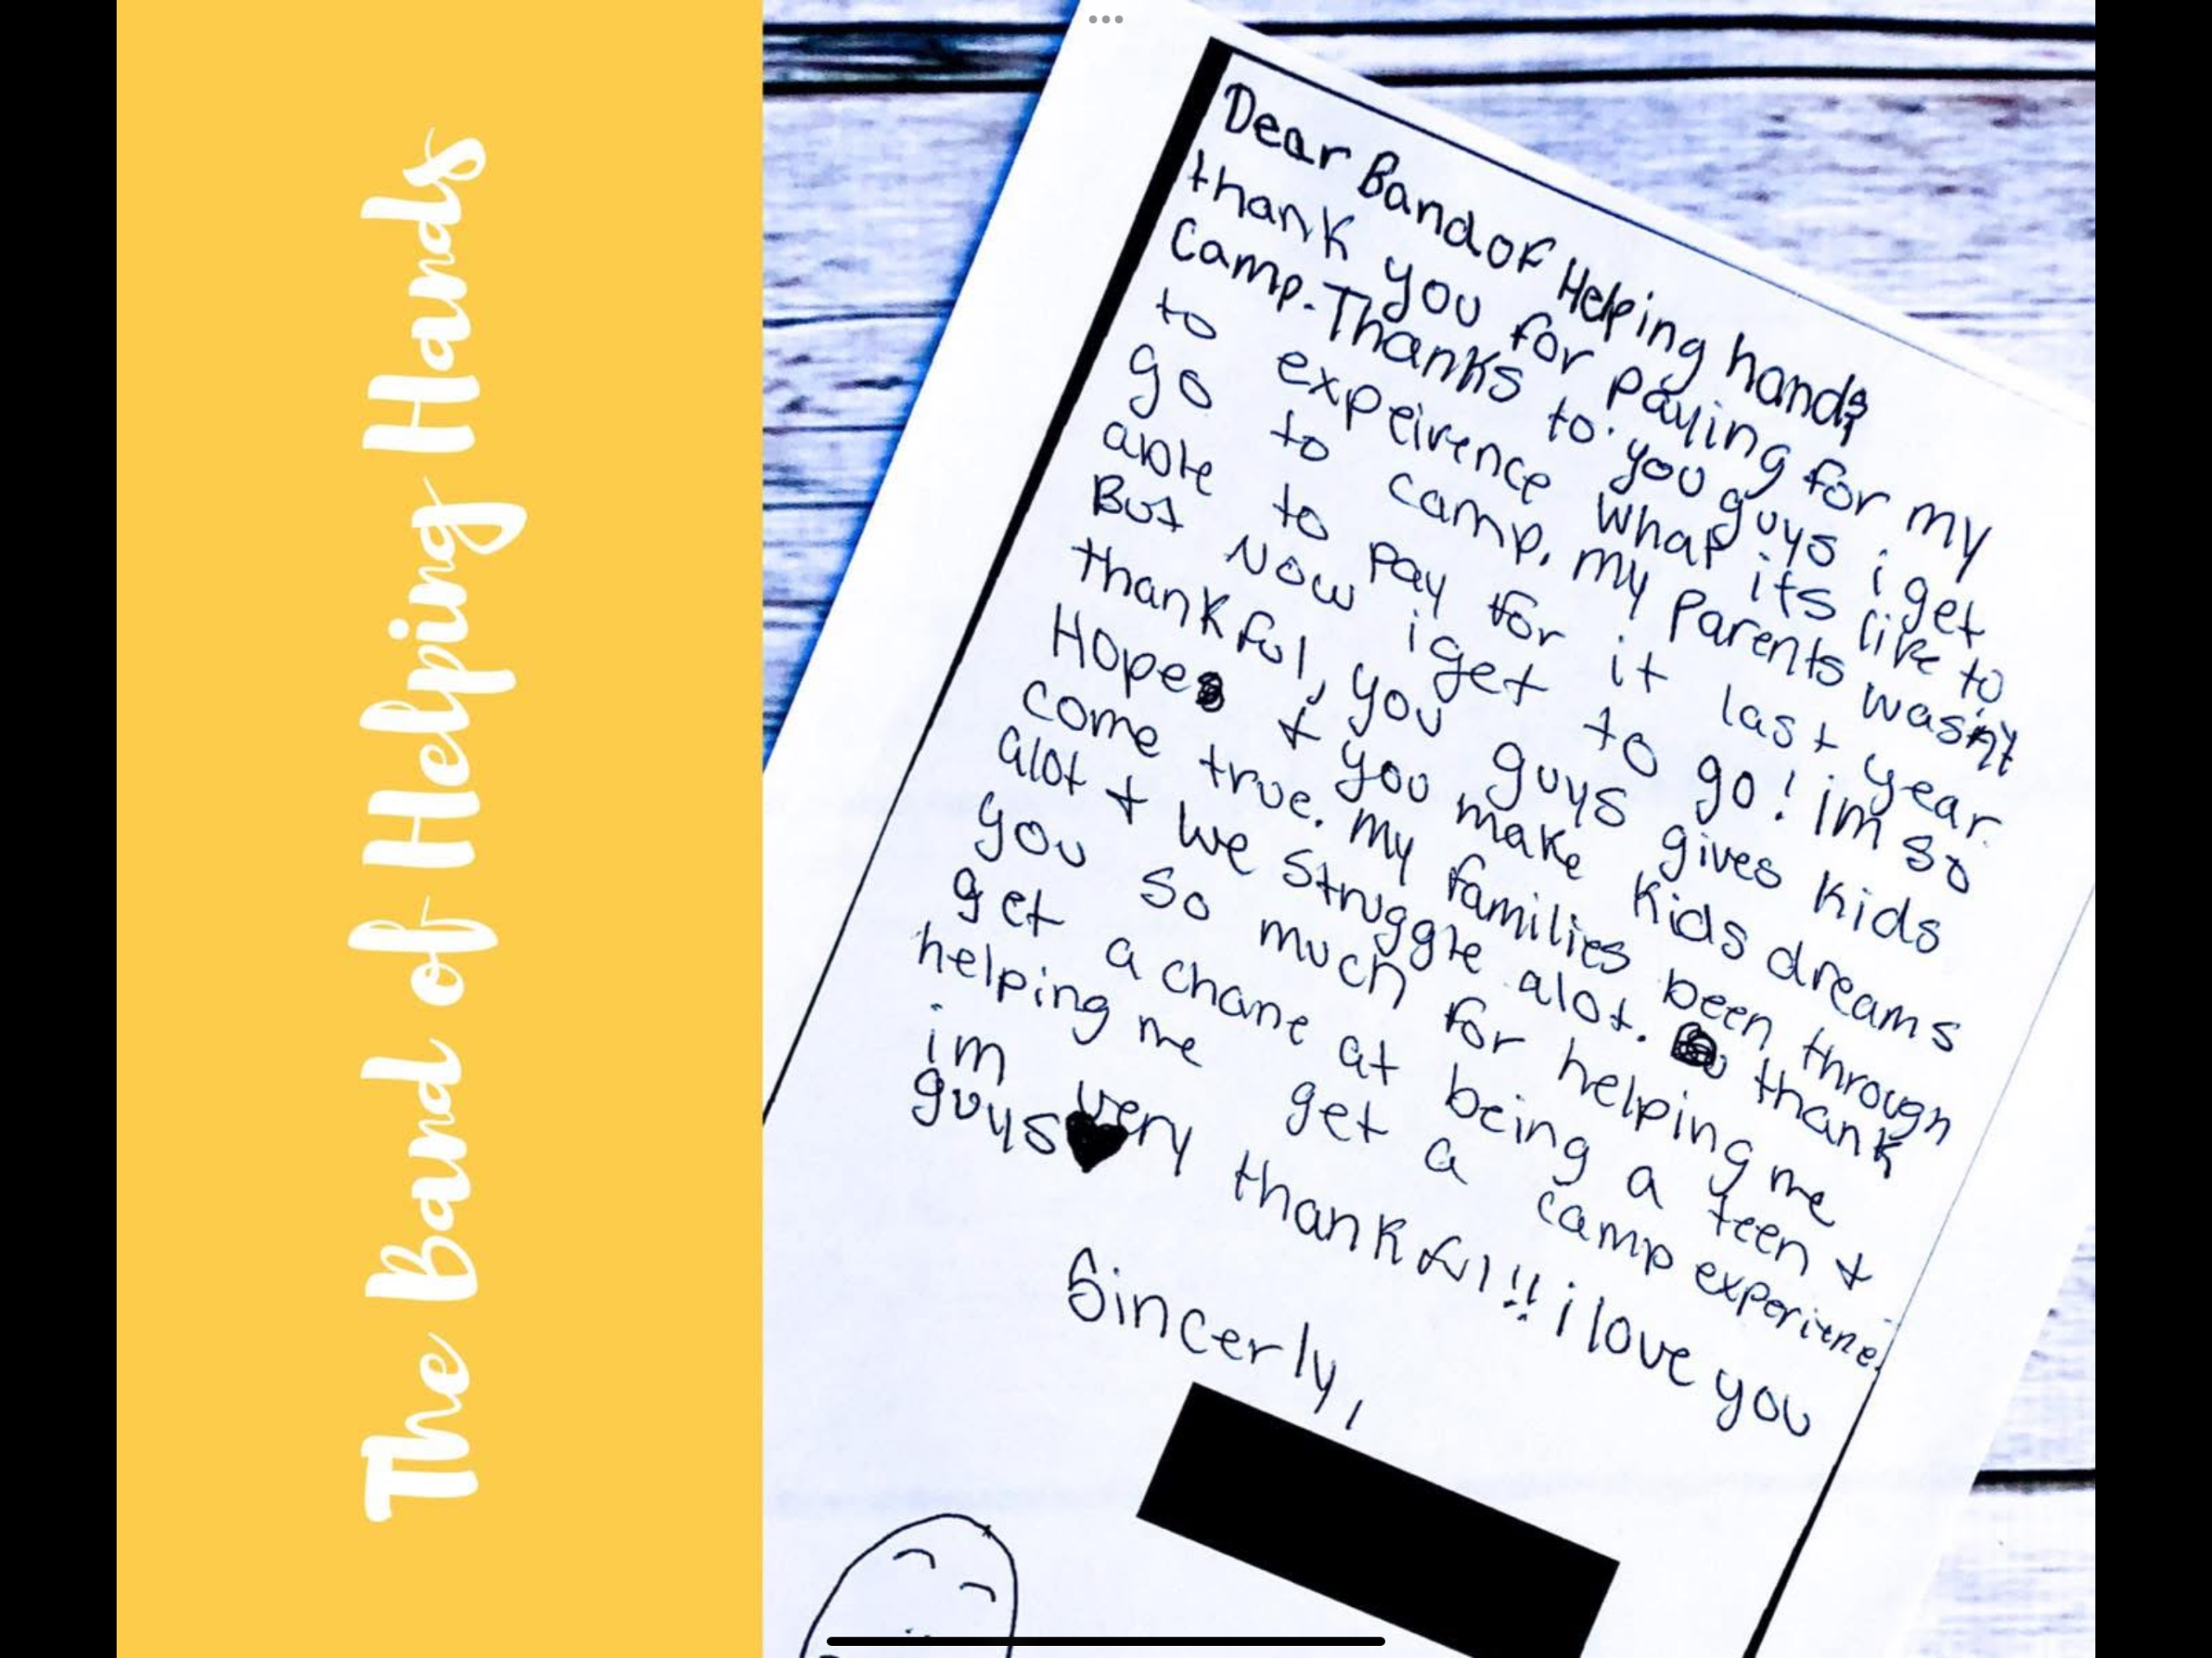 The Band of Helping Hands
Dear Band of Helping hands,
thank you for paying for my
Camp. Thanks to you guys i get
to expeirence what its like to
go to camp, my parents wasn't
able to pay for it last year.
But Now i get to go! im so
thankful, you guys gives kids
Hope & you make kids dreams
come true. my families been through
alot & we struggle alot. thank
you so much for helping me
get a chane at being a teen &
helping me get a camp experiene.
im very thankful!! i love you
guys♥
Sincerly,